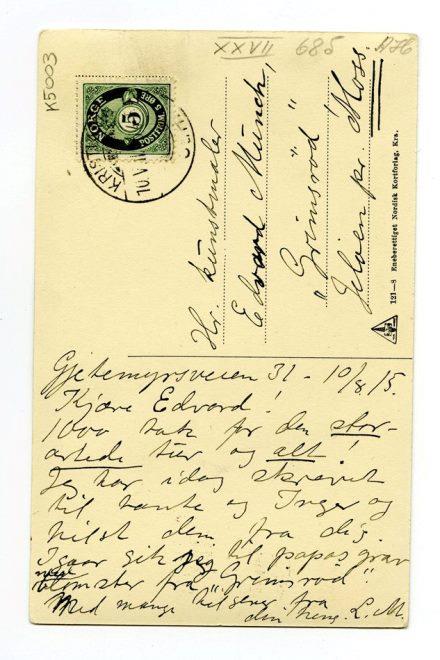 K5003
XXVII 685 AHG
NORGE
5
POSTFRIM. 5 ØRE
KRIST
Hr. kunstmaler
Edvard Munch,
"Grimsrød"
Jeløen pr. Moss.
121–8 Eneberettiget Nordisk Kortforlag. Kra.
Gjetemyrsveien 31 - 10/8 15.
Kjære Edvard!
1000 tak for den stor-
artede tur og alt!
Jeg har idag skrevet
til tante og Inger og
hilst dem fra dig.
Igaar gik jeg til papas grav
med
blomster fra "Grimsrød".
Med mange hilsener fra
din heng. L. M.